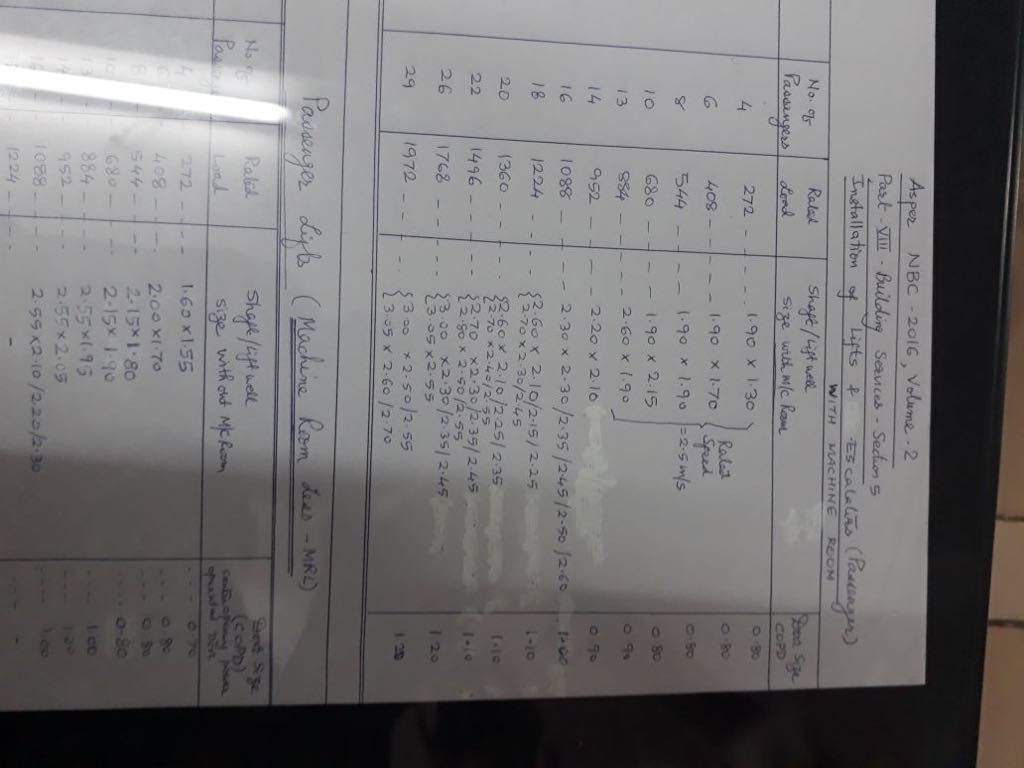 As per NBC - 2016, Volume - 2
Part - VIII - Building Services - Section 5
Installation of Lifts & Escalators (Passengers)
WITH MACHINE ROOM
No. of Passengers Rated Load Shaft/Lift well size with M/c Room Door Size COPD
4 272 -- 1.90 x 1.30 0.80
6 408 -- 1.90 x 1.70 0.80
8 544 -- 1.90 x 1.90 0.80
Rated Speed = 2.5 m/s
10 680 -- 1.90 x 2.15 0.80
13 884 -- 2.60 x 1.90 0.90
14 952 -- 2.20 x 2.10 0.90
16 1088 -- 2.30 x 2.30/2.35/2.45/2.50/2.60 1.00
18 1224 -- {2.60 x 2.10/2.15/2.25 1.10
{2.70 x 2.30/2.45
20 1360 -- {2.60 x 2.10/2.25/2.35 1.10
{2.70 x 2.40/2.55
22 1496 -- {2.70 x 2.30/2.35/2.45 1.10
{2.80 x 2.50/2.55
26 1768 -- {3.00 x 2.30/2.35/2.45 1.20
{3.05 x 2.55
29 1972 -- {3.00 x 2.50/2.55 1.20
{3.05 x 2.60/2.70
Passenger Lifts (Machine Room Less - MRL)
No. of Rated Load Shaft/Lift well size without M/c Room Door Size (COPD)
4 272 -- 1.60 x 1.55 --- 0.70
408 -- 2.00 x 1.70 --- 0.80
8 544 -- 2.15 x 1.80 --- 0.80
680 -- 2.15 x 1.90 --- 0.80
884 -- 2.55 x 1.95 --- 1.00
952 -- 2.55 x 2.05 --- 1.00
1088 -- 2.55 x 2.10/2.20/2.30 --- 1.00
1224 -- - --- -